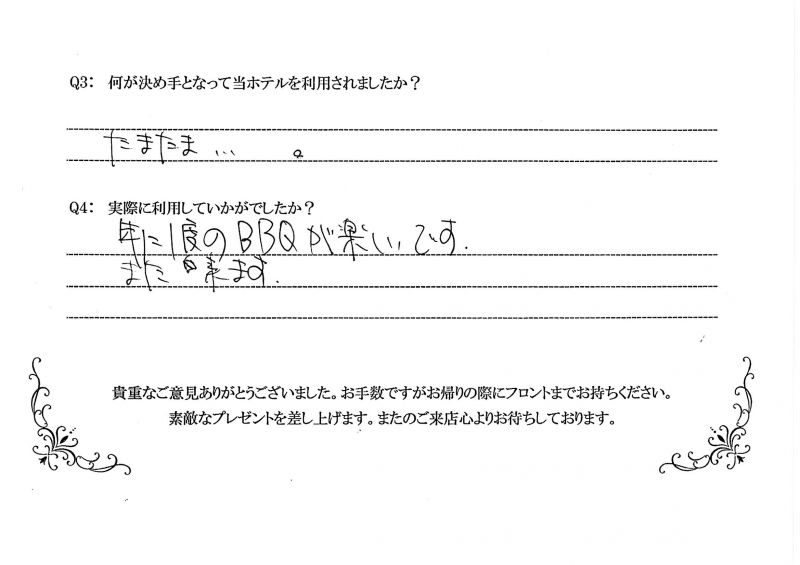 Q3： 何が決め手となって当ホテルを利用されましたか？
たまたま … 。
Q4： 実際に利用していかがでしたか？
年に1度のBBQが楽しいです.
また来ます.
貴重なご意見ありがとうございました。お手数ですがお帰りの際にフロントまでお持ちください。
素敵なプレゼントを差し上げます。またのご来店心よりお待ちしております。